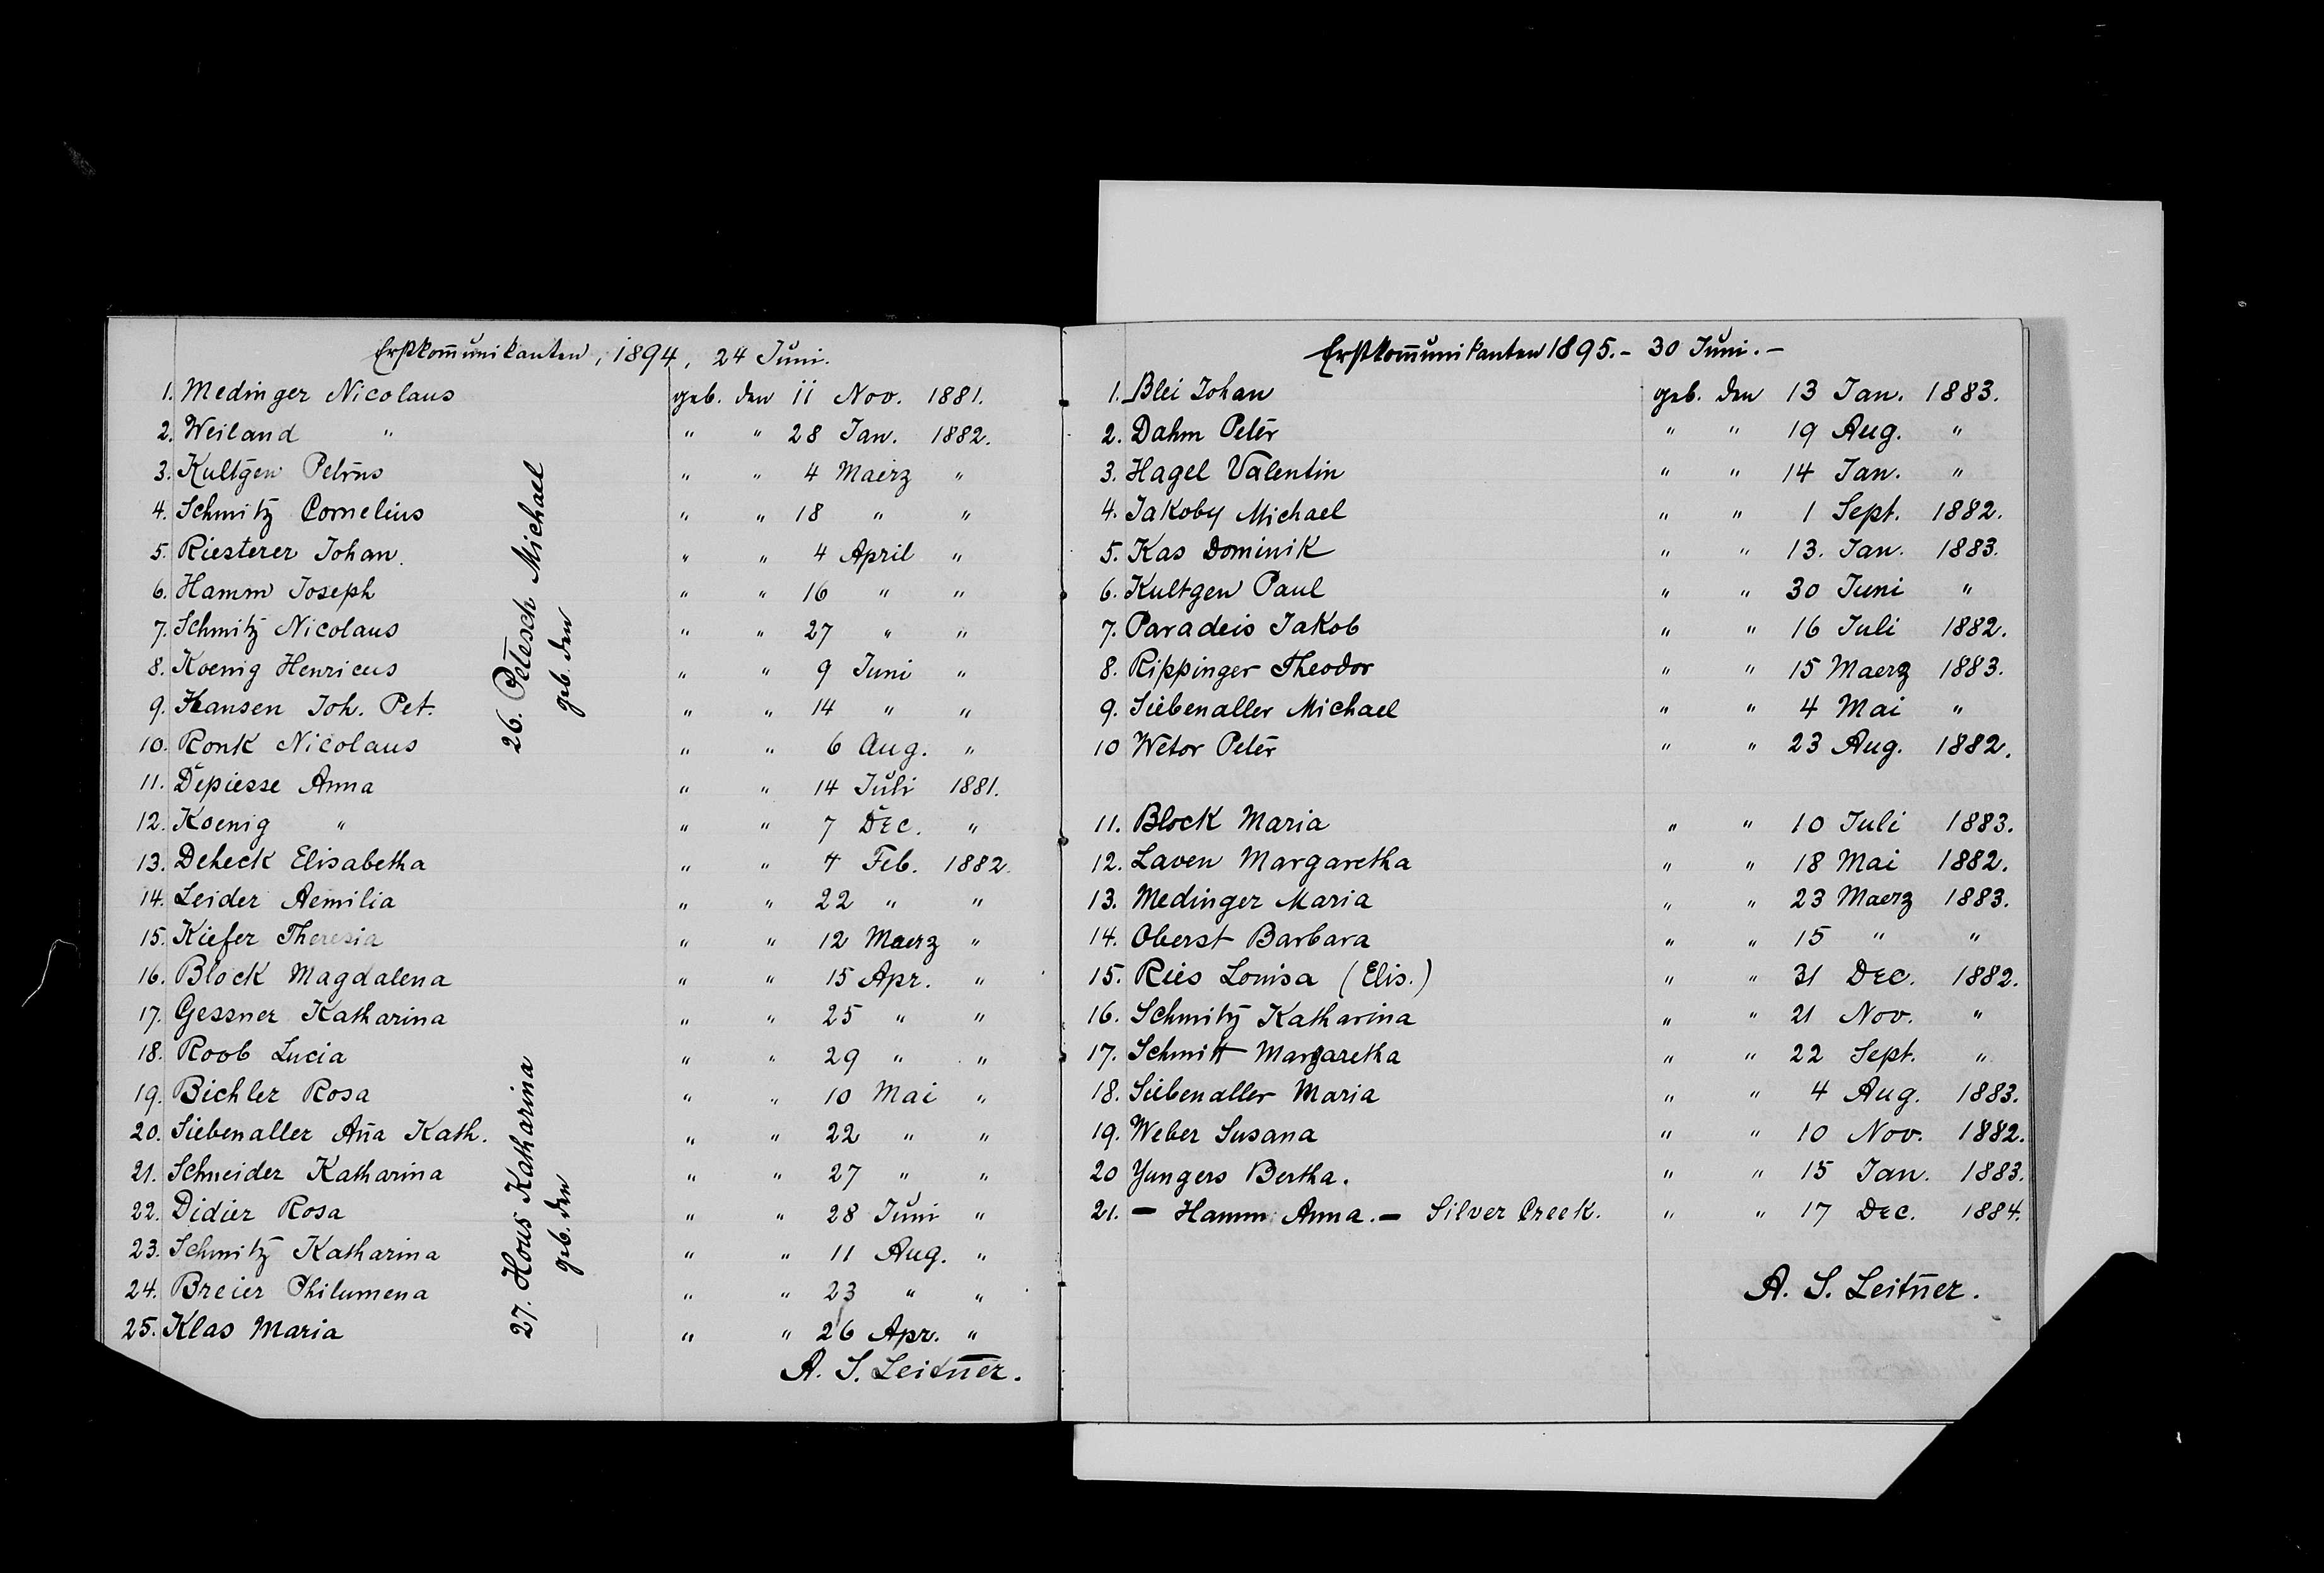 Erstkom̄unikanten, 1894, 24 Juni.
1. Medinger Nicolaus geb. den 11 Nov. 1881.
2. Weiland " " " 28 Jan. 1882.
3. Kultgen Petrus " " 4 Maerz "
4. Schmitz Cornelius " " 18 " "
5. Riesterer Johan. " " 4 April "
6. Hamm Joseph " " 16 " "
7. Schmitz Nicolaus " " 27 " "
8. Koenig Henricus " " 9 Juni "
9. Hansen Joh. Pet. " " 14 " "
10. Ronk Nicolaus " " 6 Aug. "
11. Depiesse Anna " " 14 Juli 1881.
12. Koenig " " " 7 Dec. "
13. Deheck Elisabetha " " 4 Feb. 1882.
14. Leider Aemilia " " 22 " "
15. Kiefer Theresia " " 12 Maerz "
16. Block Magdalena " " 15 Apr. "
17. Gessner Katharina " " 25 " "
18. Roob Lucia " " 29 " "
19. Bichler Rosa " " 10 Mai "
20. Siebenaller An̄a Kath. " " 22 " "
21. Schneider Katharina " " 27 " "
22. Didier Rosa " " 28 Juni "
23. Schmitz Katharina " " 11 Aug. "
24. Breier Philumena " " 23 " "
25. Klas Maria " " 26 Apr. "
A. S. Leitner.
26. Petesch Michael
geb. den
27. Hous Katharina
geb. den
Erstkom̄unikanten 1895. - 30 Juni. -
1. Blei Johan geb. den 13 Jan. 1883.
2. Dahm Peter " " 19 Aug. "
3. Hagel Valentin " " 14 Jan. "
4. Jakoby Michael " " 1 Sept. 1882.
5. Kas Dominik " " 13. Jan. 1883.
6. Kultgen Paul " " 30 Juni "
7. Paradeis Jakob " " 16 Juli 1882.
8. Rippinger Theodor " " 15 Maerz 1883.
9. Siebenaller Michael " " 4 Mai "
10 Wetor Peter " " 23 Aug. 1882.
11. Block Maria " " 10 Juli 1883.
12. Laven Margaretha " " 18 Mai 1882.
13. Medinger Maria " " 23 Maerz 1883.
14. Oberst Barbara " " 15 " "
15. Ries Louisa (Elis.) " " 31 Dec. 1882.
16. Schmitz Katharina " " 21 Nov. "
17. Schmitt Margaretha " " 22 Sept. "
18. Siebenaller Maria " " 4 Aug. 1883.
19. Weber Susana " " 10 Nov. 1882.
20 Yungers Bertha. " " 15 Jan. 1883.
21. - Hamm Anna. - Silver Creek. " " 17 Dec. 1884.
A. S. Leitner.